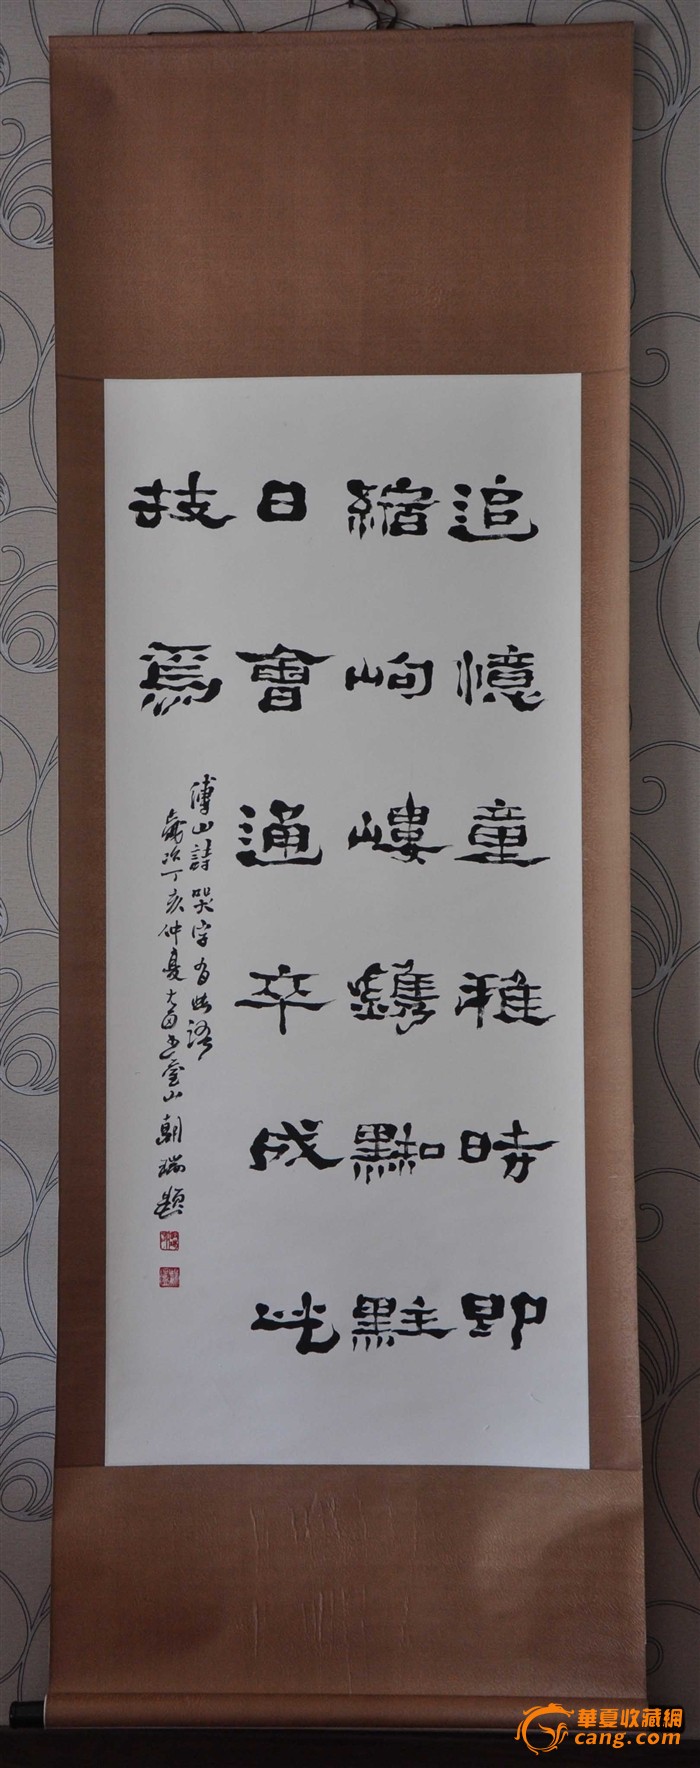 追憶童稚時即
縮岣嶁鐫點黈
日會通卒成此
技焉
傅山詩哭字有此語
歲次丁亥仲夏大自在室山朝瑞題
華夏收藏網
cang.com